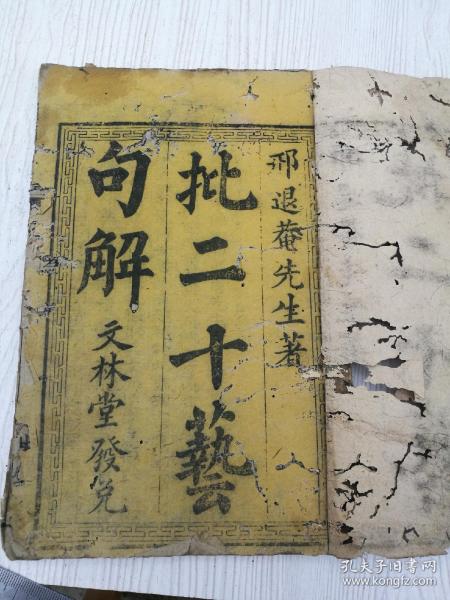 邢退菴先生著
批二十藝
句解
文林堂發兑
孔夫子旧书网
www.kongfz.com